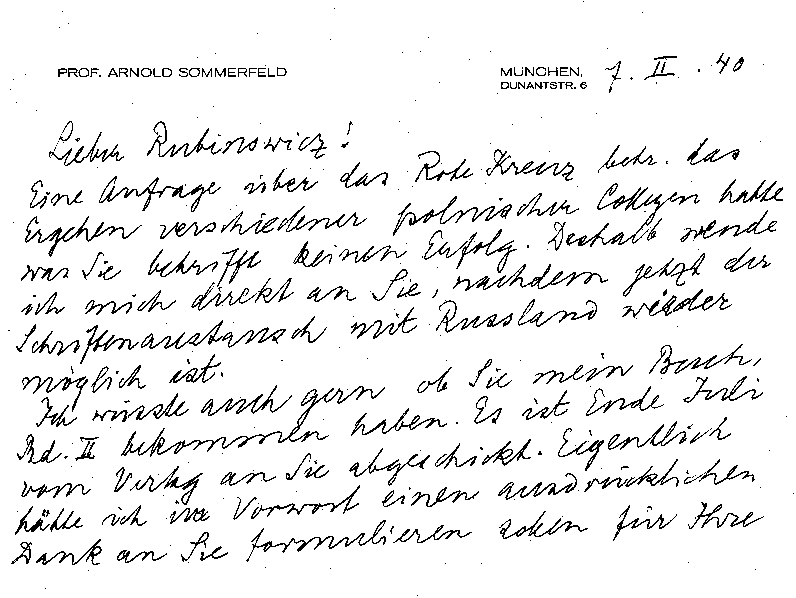 PROF. ARNOLD SOMMERFELD
MÜNCHEN, 7. II. 40
DUNANTSTR. 6
Lieber Rubinowicz!
Eine Anfrage über das Rote Kreuz betr. das
Ergehen verschiedener polnischer Collegen hatte
was Sie betrifft keinen Erfolg. Deshalb wende
ich mich direkt an Sie, nachdem jetzt der
Schriftenaustausch mit Russland wieder
möglich ist.
Ich wüsste auch gern ob Sie mein Buch,
Bd. II bekommen haben. Es ist Ende Juli
vom Verlag an Sie abgeschickt. Eigentlich
hätte ich im Vorwort einen ausdrücklichen
Dank an Sie formulieren sollen für Ihre